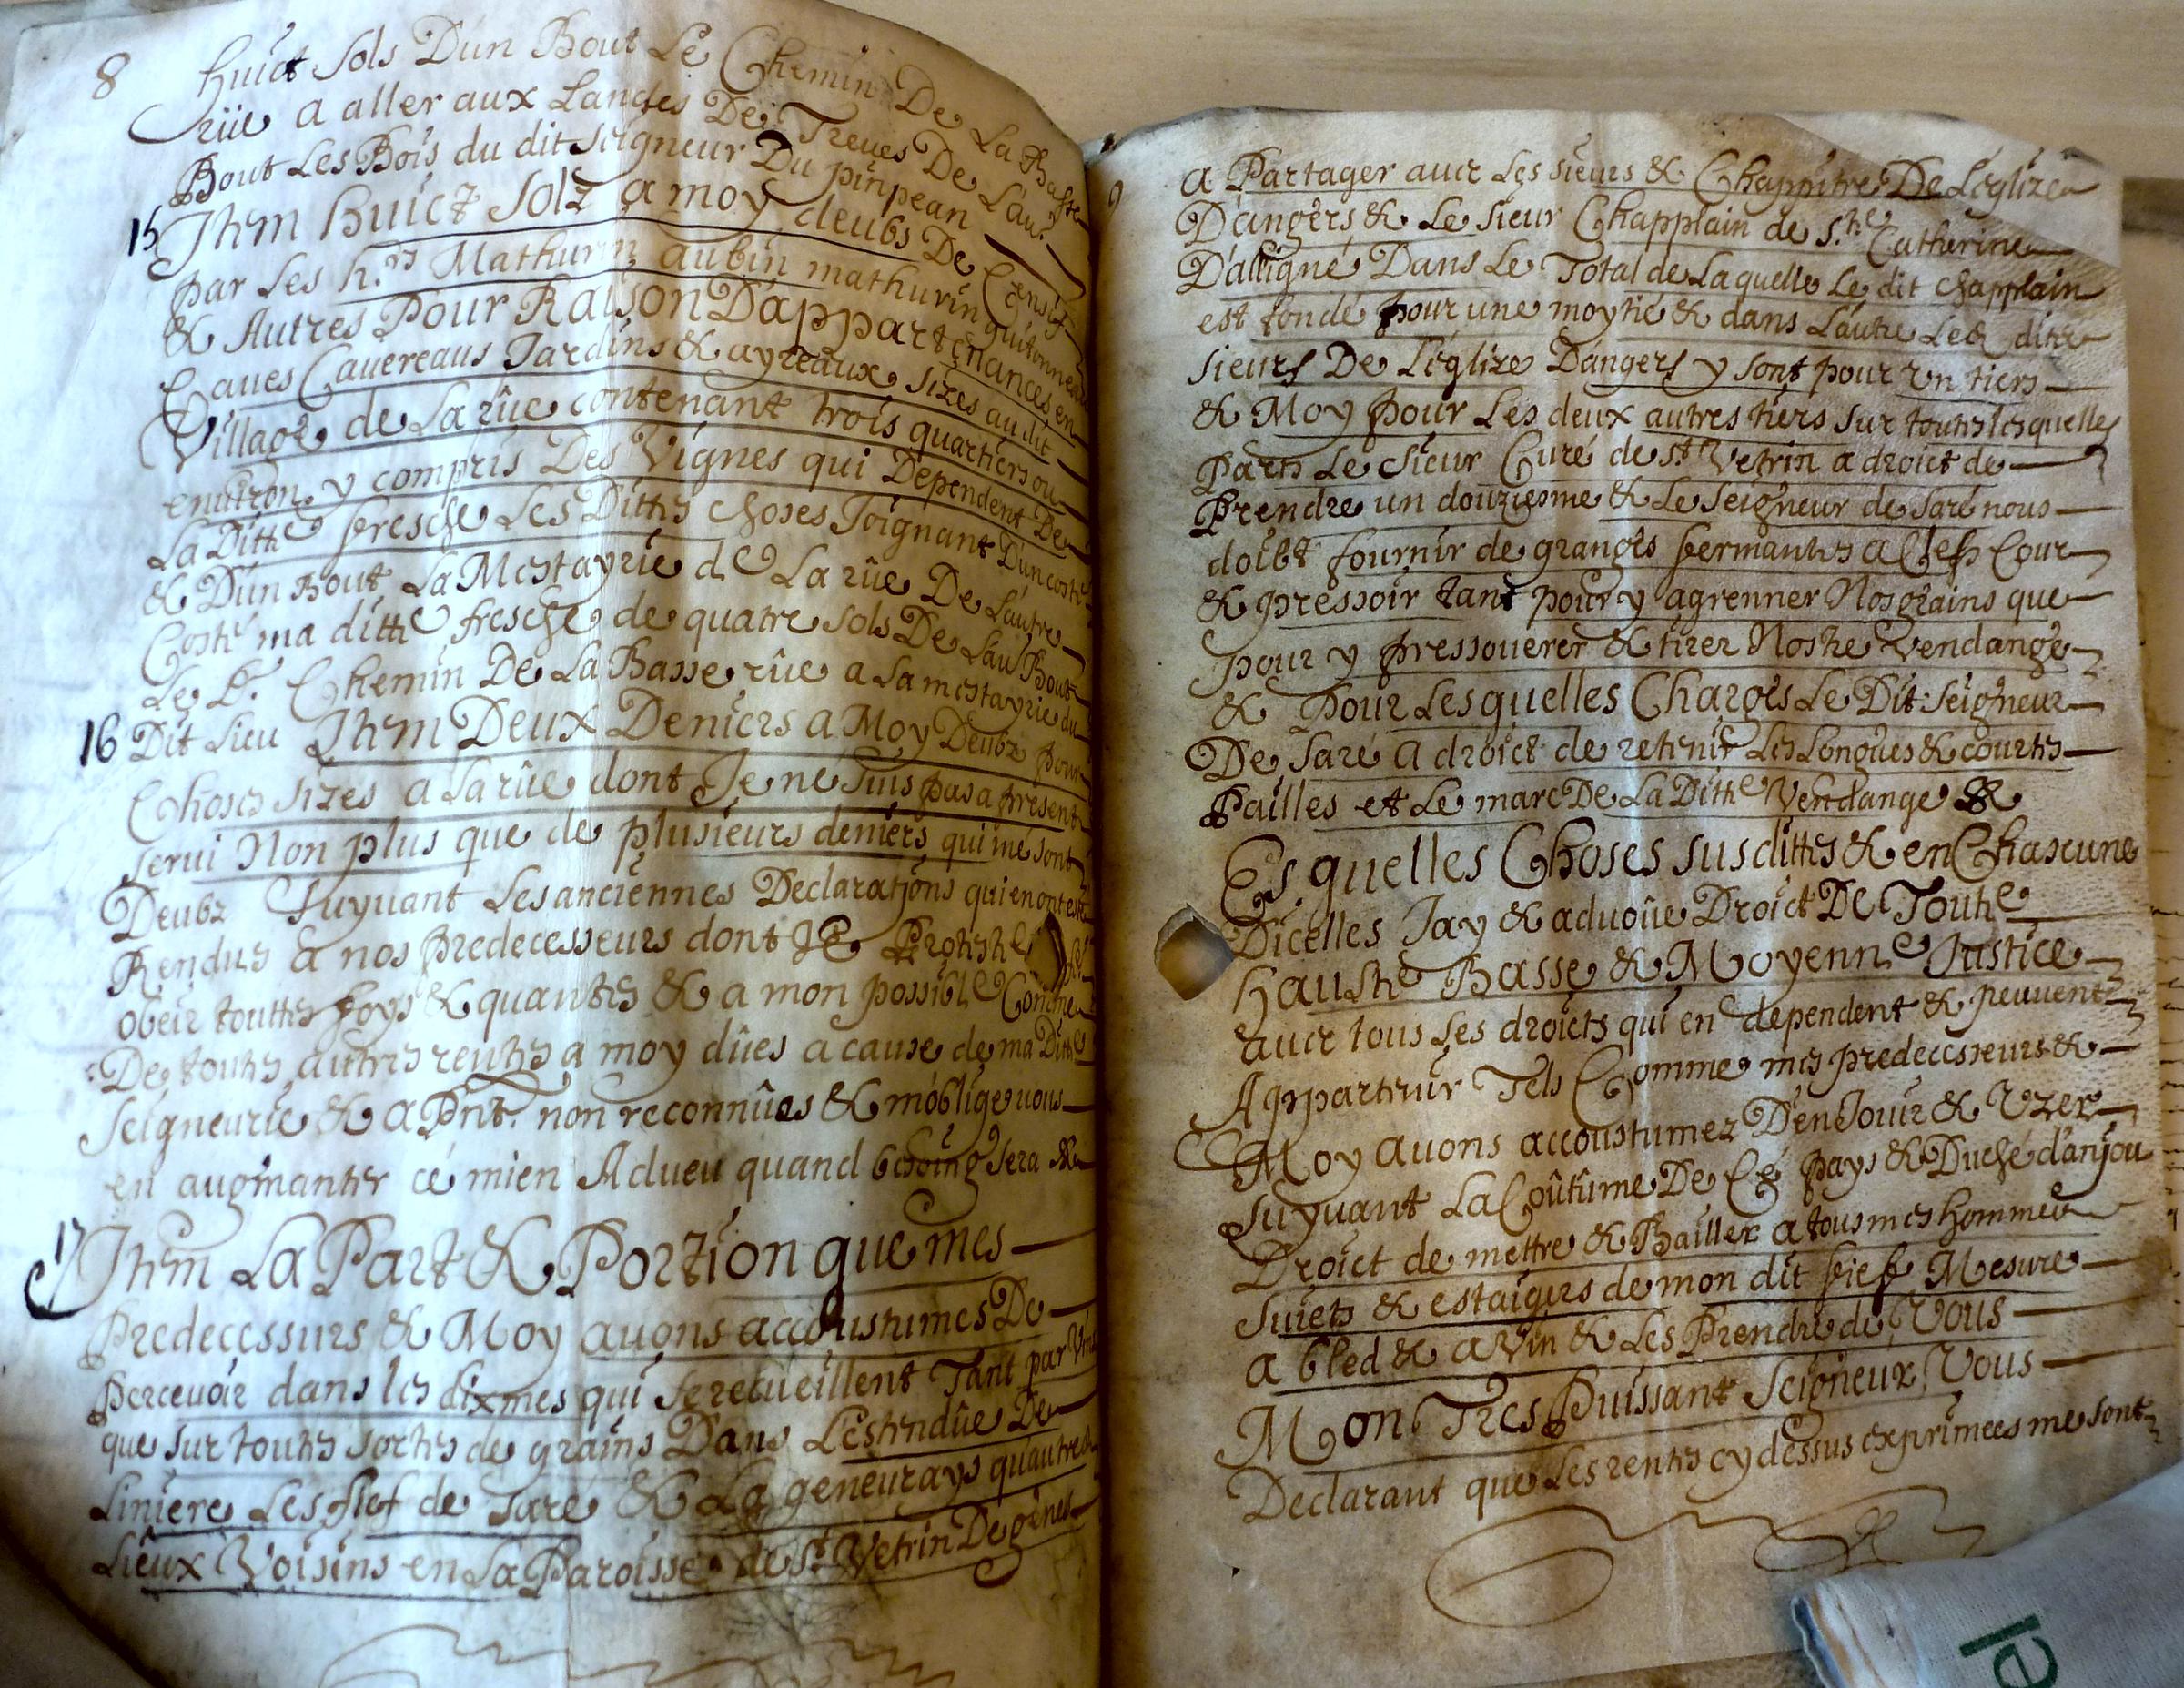 8
huict sols D'un Bout Le Chemin De La Basse
rüe a aller aux Landes De Treues De L'autre
Bout Les Bois du dit seigneur Du pinpean
15 Item huict Solz a moy deubs De Censif
par Les h.rs Mathurin aubin mathurin guitonneau
& Autres Pour Raison D'appartenances en
Caues Cauereaus Jardins & ayreaux sizes au dit
Village de La rüe contenant trois quartiers ou
enuiron y compris Des Vignes qui Dependent De
La Ditte fresche Les Dittes choses Joignant D'un costé
& D'un Bout La Mestayrie de La rüe De L'autre
Costé ma ditte fresche de quatre sols De L'au.t Bout
Le d. Chemin De La Basse rüe a La mestayrie du
16 Dit Lieu Item Deux Deniers a Moy Deubz pour
Choses sizes a La rüe dont Je ne suis pas a present
serui Non plus que de plusieurs deniers qui me sont
Deubz suyuant Les anciennes Declarations qui en ont esté
Rendues a nos predecesseurs dont Je Proteste
obeir touttes foys & quantes & a mon possible Comme
De toutes autres rentes a moy dûes a cause de ma Ditte
Seigneurie & a Pnt. non reconnûes & m'oblige uous
en augmanter ce mien Adueu quand besoing sera &
17 Item La Part & Portion que mes
Predecesseurs & Moy auons accoustumes De
perceuoir dans les dixmes qui se recueillent Tant par
que sur toutes sortes de grains Dans L'estendûe De
Liniere Les fief de Sare & La geneurays qu'autres
Lieux Voisins en La Paroisse de St Vetrin De genes
9
a Partager auec Les sieurs & Chappitre De L'eglize
D'angers & Le Sieur Chapplain de s.te Catherine
D'alligné Dans Le Total de Laquelle Le dit chapplain
est fondé pour une moytié & dans L'autre Les dits
sieurs De L'eglize D'angers y sont pour un tiers
& Moy pour Les deux autres tiers sur toutes lesquelles
Parts Le Sieur Curé de St Vetrin a droict de
Prendre un douziesme & Le seigneur de Saré nous
doibt fournir de granges fermantes a Clefs Cour
& pressoir tant pour y agrenner Nos grains que
pour y pressouerer & tirer Nostre Vendange
& pour Lesquelles Charges Le Dit Seigneur
De Saré a droict de retenir Les Longues & courtes
Pailles et Le marc De La Ditte Vendange &
Es quelles Choses susdittes & en Chascune
D'icelles J'ay & aduoüe Droict De Toutte
Haulte Basse & Moyenne Justice
auec tous Les droicts qui en dependent & peuuent
Appartenir Tels Comme mes predecesseurs &
Moy auons accoustumez D'en Jouir & Vzer
suyuant La Coûtume De Ce pays & Duché d'anjou
Droict de mettre & Bailler a tous mes hommes
Suiets & estaigers de mon dit fief Mesure
a bled & a Vin & Les Prendre de Vous
Mon Tres Puissant Seigneur Vous
Declarant que Les rentes cy dessus exprimees me sont
le